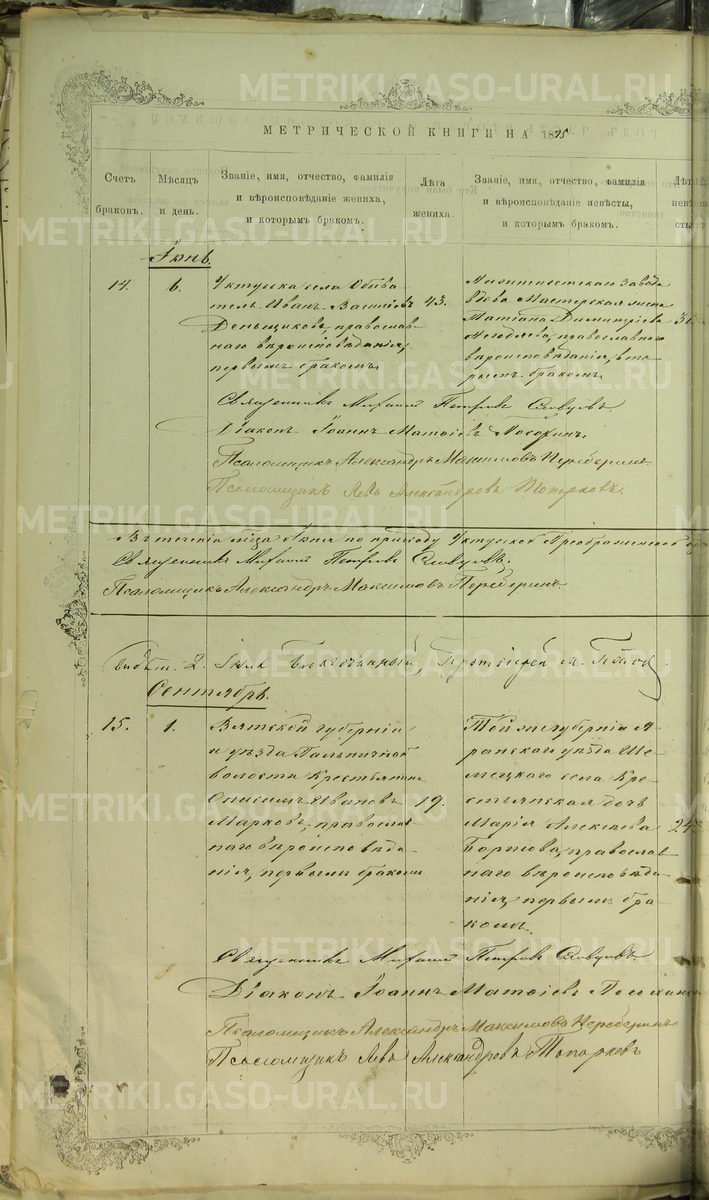 METRIKI.GASO-URAL.RU
МЕТРИЧЕСКОЙ КНИГИ НА 1875
Счетъ браковъ.
Мѣсяцъ и день.
Званіе, имя, отчество, фамилія
и вѣроисповѣданіе жениха,
и которымъ бракомъ.
Лѣта
жениха.
Званіе, имя, отчество, фамилія
и вѣроисповѣданіе невѣсты,
и которымъ бракомъ.
Іюнь.
14.
6.
Уктусска села Обыва
тель Иванъ Василіевъ
Деньщиковъ, православ
наго вѣроисповѣданія,
первымъ бракомъ.
43.
завода
Вдова Мастерская жена
Матіана Димитріева
православнаго
вѣроисповѣданія, вто
рымъ бракомъ.
Священникъ Михаилъ Петровъ Словцовъ.
Діаконъ Іоаннъ Матѳіевъ
Псаломщикъ Александръ Максимовъ Переберинъ
Псаломщикъ Левъ Александровъ Топорковъ.
Въ теченіи мѣсяца Іюня по приходу Уктусской Преображенской
Священникъ Михаилъ Петровъ Словцовъ.
Псаломщикъ Александръ Максимовъ Переберинъ
2. Іюля Благочинный, Протоіерей
Сентябрь.
15.
1.
Вятской губерніи
и уѣзда Пальничной
волости Крестьянинъ
Онисимъ Ивановъ
Марковъ, православ
наго вѣроисповѣда
нія, первымъ бракомъ
19.
Той же губерніи Я
ранскаго уѣзда Ше
мецкаго села Кре
стьянская дочь
Марія Алексѣева
православ
наго вѣроисповѣда
нія, первымъ бра
комъ.
24
Священникъ Михаилъ Петровъ Словцовъ.
Діаконъ Іоаннъ Матѳіевъ
Псаломщикъ Александръ Максимовъ Переберинъ
Псаломщикъ Левъ Александровъ Топорковъ